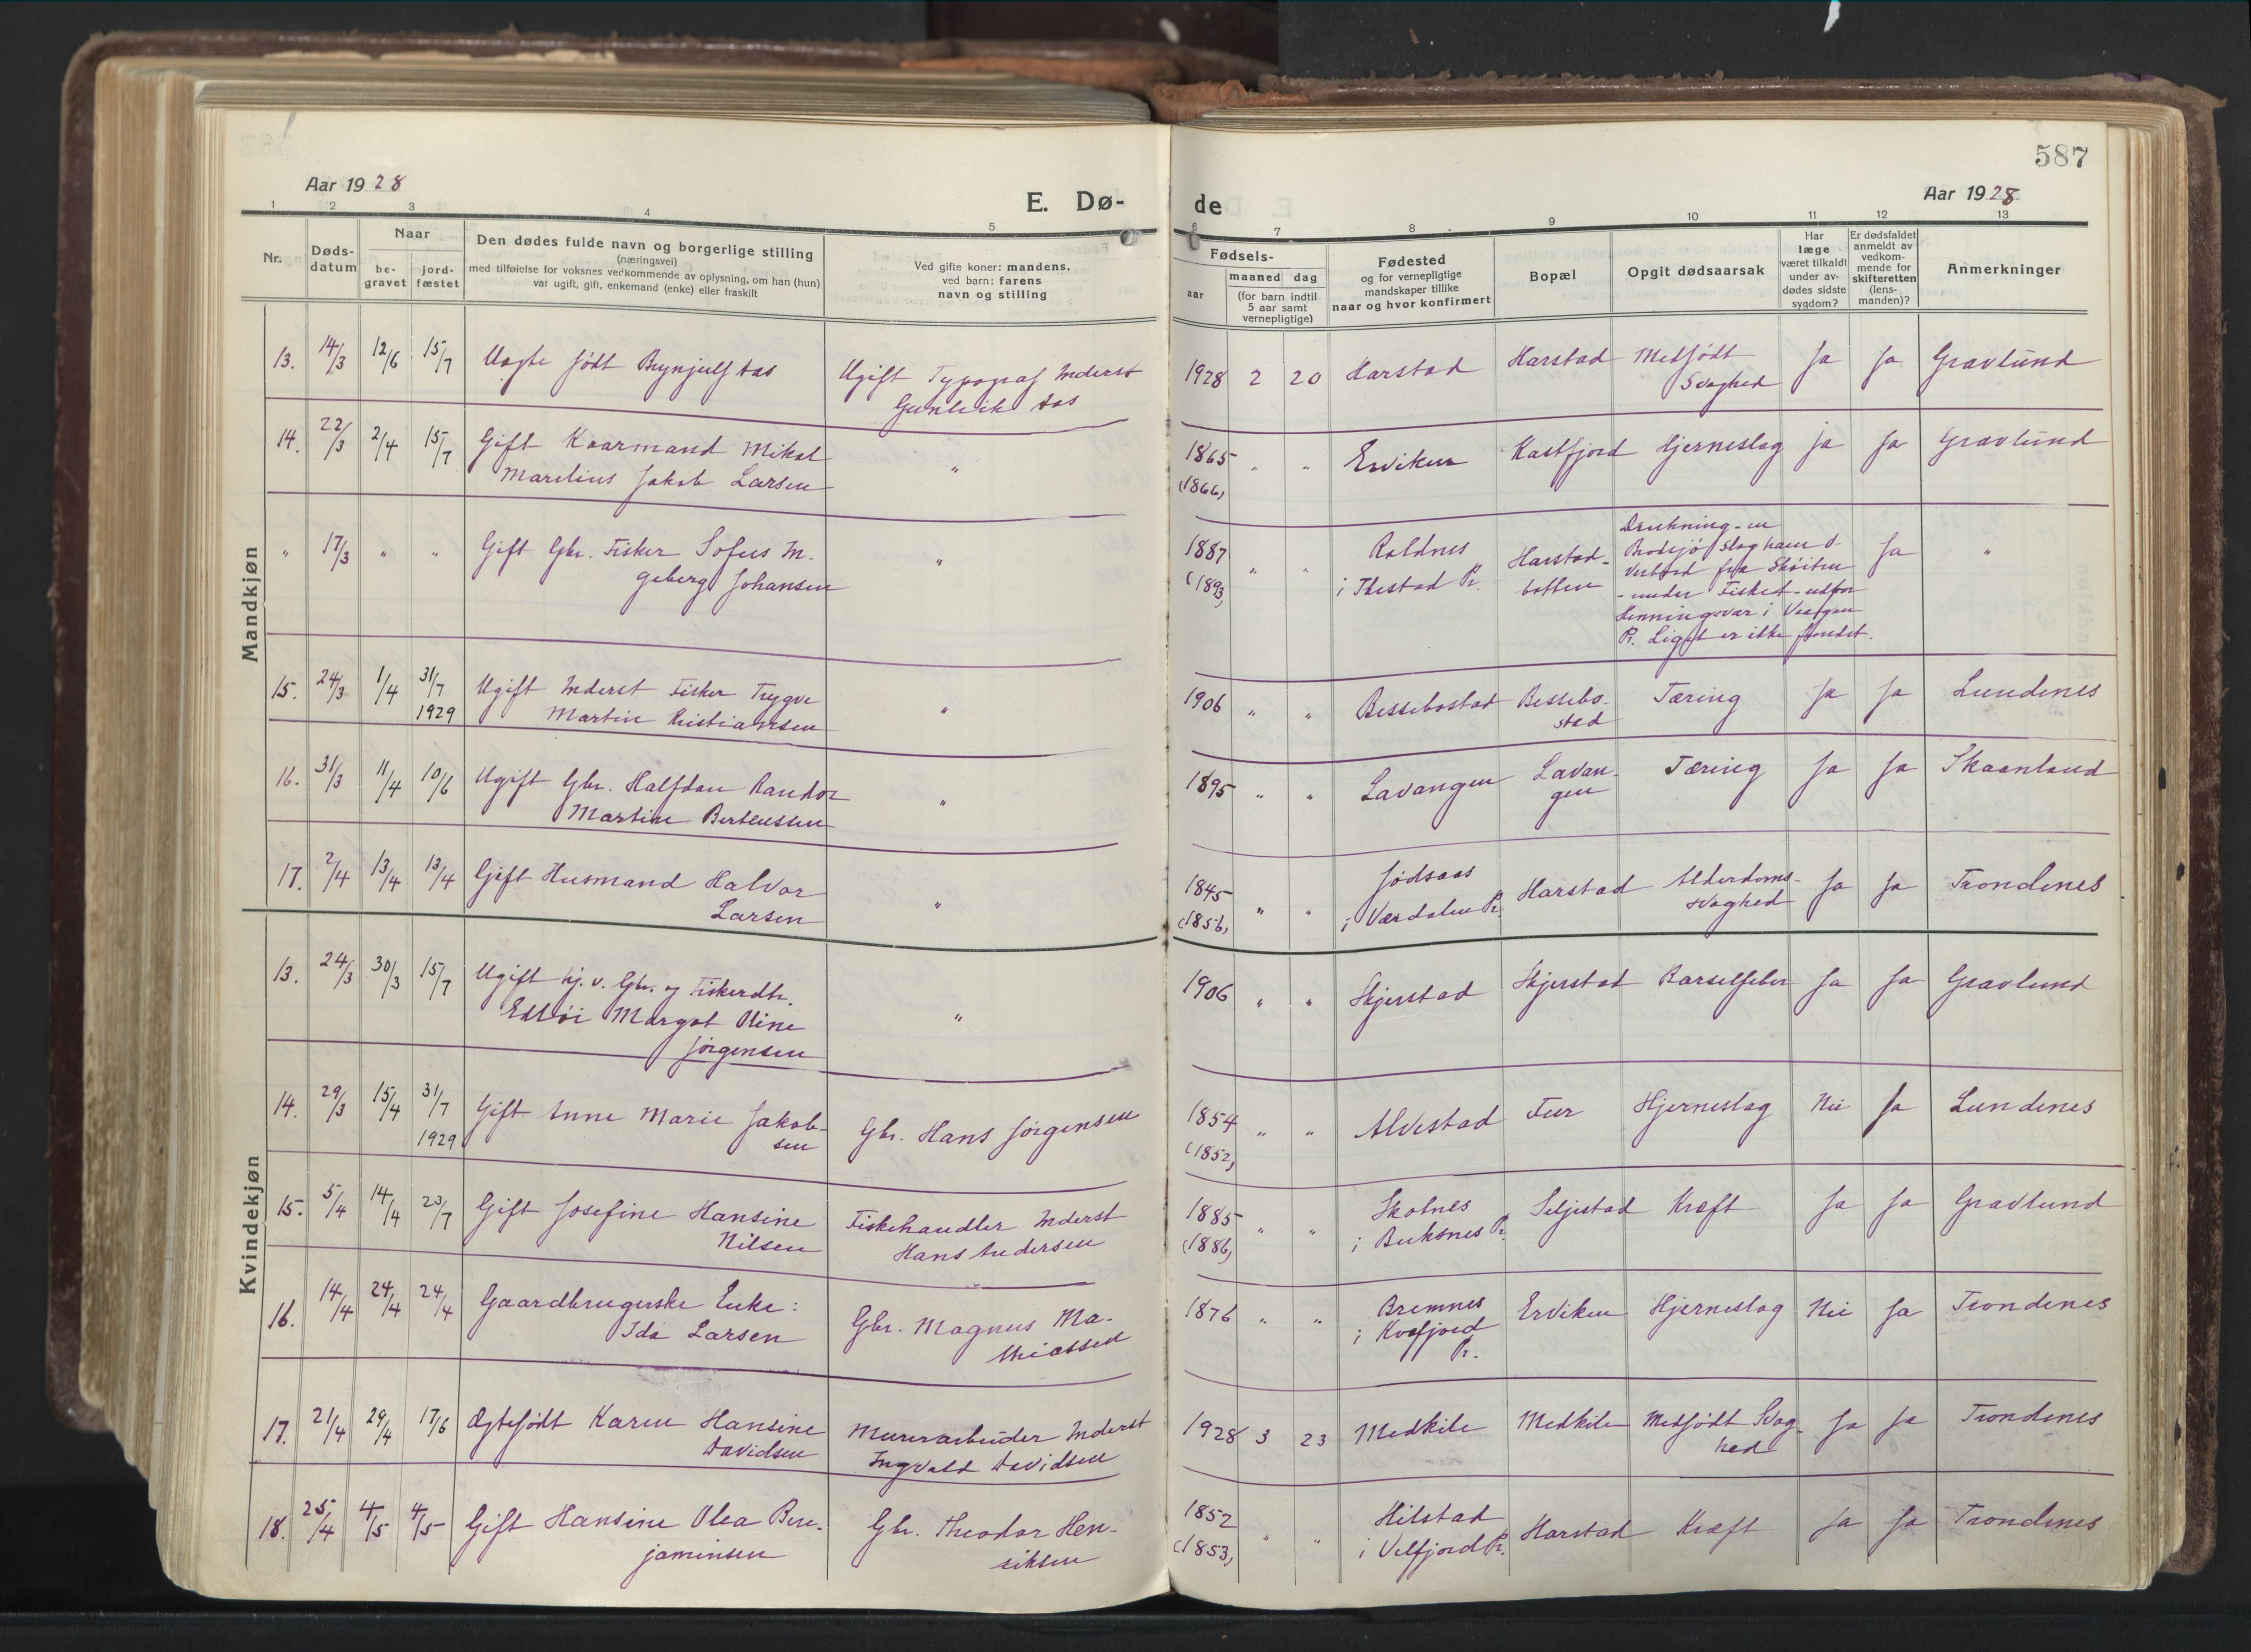 587
Aar 1928
E. Dø-
de
Aar 1928
1 2 3 4 5 6 7 8 9 10 11 12 13
Nr.
Døds-
datum
Naar
be-
gravet
jord-
fæstet
Den dødes fulde navn og borgerlige stilling
(næringsvei)
med tilføielse for voksnes vedkommende av oplysning, om han (hun)
var ugift, gift, enkemand (enke) eller fraskilt
Ved gifte koner: mandens,
ved barn: farens
navn og stilling
Fødsels-
aar
maaned dag
(for barn indtil
5 aar samt
vernepligtige)
Fødested
og for vernepligtige
mandskaper tillike
naar og hvor konfirmert
Bopæl
Opgit dødsaarsak
Har
læge
været tilkaldt
under av-
dødes sidste
sygdom?
Er dødsfaldet
anmeldt av
vedkom-
mende for
skifteretten
(lens-
manden)?
Anmerkninger
Mandkjøn
13. 14/3 12/6 15/7 Uægte født Brynjulf Aas
Ugift Typograf Inderst
Gunleik Aas
1928 2 20 Harstad Harstad Medfødt
Svaghed
Ja Ja Gravlund
14. 22/3 2/4 15/7 Gift Kaarmand Mikal
Marelius Jakob Larsen
"
1865
(1866)
" " Erviken Kastfjord Hjerneslag Ja Ja Gravlund
" 17/3 " " Gift Gbr. Fisker Sofus In-
geberg Johansen
"
1887
(1893)
" " Roldnes
i Ibestad Pr.
Harstad-
botten
Drukning - en
Brodsjø slog ham o-
verbord fra Skøiten
- under Fisket - udfor
Henningsvær i Vaagan
Pr. Liget er ikke fundet.
Ja "
15. 24/3 1/4 31/7
1929
Ugift Inderst Fisker Trygve
Martin Kristiansen
"
1906 " " Bessebostad Bessebo-
stad
Tæring Ja Ja Lundenes
16. 31/3 11/4 10/6 Ugift Gbr. Halfdan Randor
Martin Berteussen
"
1895 " " Lavangen Lavan-
gen
Tæring Ja Ja Skaanland
17. 2/4 13/4 13/4 Gift Husmand Halvor
Larsen
"
1845
(1856)
" " Jødsaas
i Værdalen Pr.
Harstad Alderdoms-
svaghed
Ja Ja Trondenes
Kvindekjøn
13. 24/3 30/3 15/7 Ugift hj. v. Gbr. og Fiskerdtr.
Margot Oline
Jørgensen
"
1906 " " Hjerstad Hjerstad Barselfeber Ja Ja Gravlund
14. 29/3 15/4 31/7
1929
Gift Anne Marie Jakob-
sen
Gbr. Hans Jørgensen
1854
(1852)
" " Alvestad Fur Hjerneslag Nei Ja Lundenes
15. 5/4 14/4 23/7 Gift Josefine Hansine
Nilsen
Fiskehandler Inderst
Hans Andersen
1885
(1886)
" " Skotnes
i Buksnes Pr.
Seljestad Kræft Ja Ja Gravlund
16. 14/4 24/4 24/4 Gaardbrugerske Enke:
Ida Larsen
Gbr. Magnus Ma-
thiassen
1876 " " Bremnes
i Kvæfjord
Pr.
Erviken Hjerneslag Nei Ja Trondenes
17. 21/4 29/4 17/6 Ægtefødt Karen Hansine
Davidsen
Murerarbeider Inderst
Ingvald Davidsen
1928 3 23 Medkile Medkile Medfødt Svag-
hed
Ja Ja Trondenes
18. 25/4 4/5 4/5 Gift Hansine Olea Ben-
jaminsen
Gbr. Theodor Hen-
riksen
1852
(1853)
" " Hilstad
i Velfjord Pr.
Harstad Kræft Ja Ja Trondenes